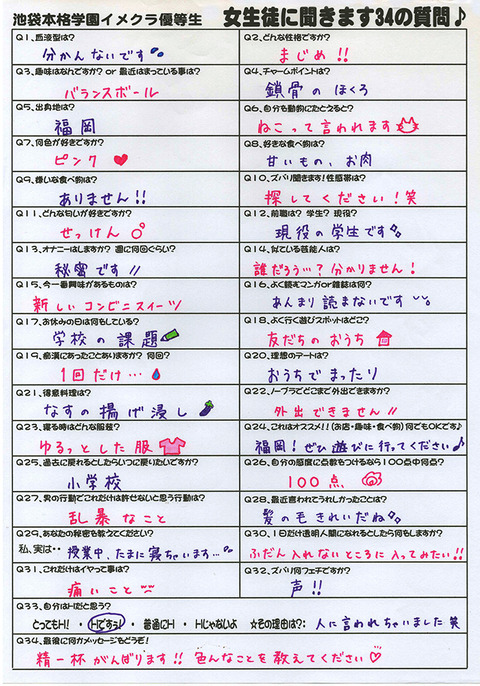 池袋本格学園イメクラ優等生 女生徒に聞きます34の質問♪
Q1、血液型は?
分かんないです
Q2、どんな性格ですか?
まじめ!!
Q3、趣味はなんですか? or 最近はまっている事は?
バランスボール
Q4、チャームポイントは?
鎖骨のほくろ
Q5、出身地は?
福岡
Q6、自分を動物にたとえると?
ねこって言われます
Q7、何色が好きですか?
ピンク♥
Q8、好きな食べ物は?
甘いもの、お肉
Q9、嫌いな食べ物は?
ありません!!
Q10、ズバリ聞きます!性感帯は?
探してください!笑
Q11、どんな匂いが好きですか?
せっけん
Q12、前職は? 学生? 現役?
現役の学生です
Q13、オナニーはしますか? 週に何回ぐらい?
秘密です//
Q14、似ている芸能人は?
誰だろう…?分かりません!
Q15、今一番興味があるものは?
新しいコンビニスイーツ
Q16、よく読むマンガor雑誌は何?
あんまり読まないです
Q17、お休みの日は何をしている?
学校の課題
Q18、よく行く遊びスポットはどこ?
友だちのおうち
Q19、痴漢にあったことありますか? 何回?
1回だけ…
Q20、理想のデートは?
おうちでまったり
Q21、得意料理は?
なすの揚げ浸し
Q22、ノーブラでどこまで外出できますか?
外出できません//
Q23、寝る時はどんな服装?
ゆるっとした服
Q24、これはオススメ!!(お店・趣味・食べ物)何でもOKです♪
福岡!ぜひ遊びに行ってください♪
Q25、過去に戻れるとしたらいつに戻りたいですか?
小学校
Q26、自分の感度に点数をつけるなら100点中何点?
100点
Q27、男の行動でこれだけは許せないと思う行動は?
乱暴なこと
Q28、最近言われてうれしかったことは?
髪の毛きれいだね
Q29、あなたの秘密を教えてください?
私、実は・・授業中、たまに寝ちゃいます…
Q30、1日だけ透明人間になれるとしたら何をしますか?
ふだん入れないところに入ってみたい!!
Q31、これだけはイヤって事は?
痛いこと
Q32、ズバリ何フェチですか?
声!!
Q33、自分はHだと思う?
とってもH! ・ Hですぅ! ・ 普通にH ・ Hじゃないよ ☆その理由は?: 人に言われちゃいました笑
Q34、最後に何かメッセージをどうぞ!
精一杯がんばります!!色んなことを教えてください♡